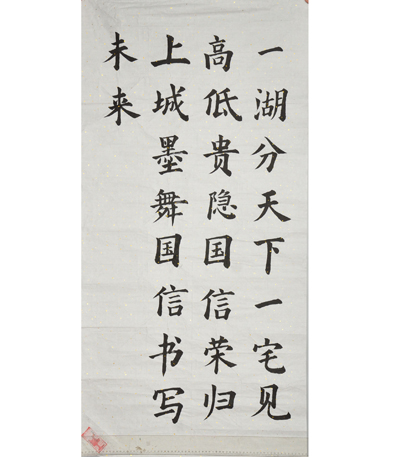 一湖分天下一宅见
高低贵隐国信荣归
上城墨舞国信书写
未来